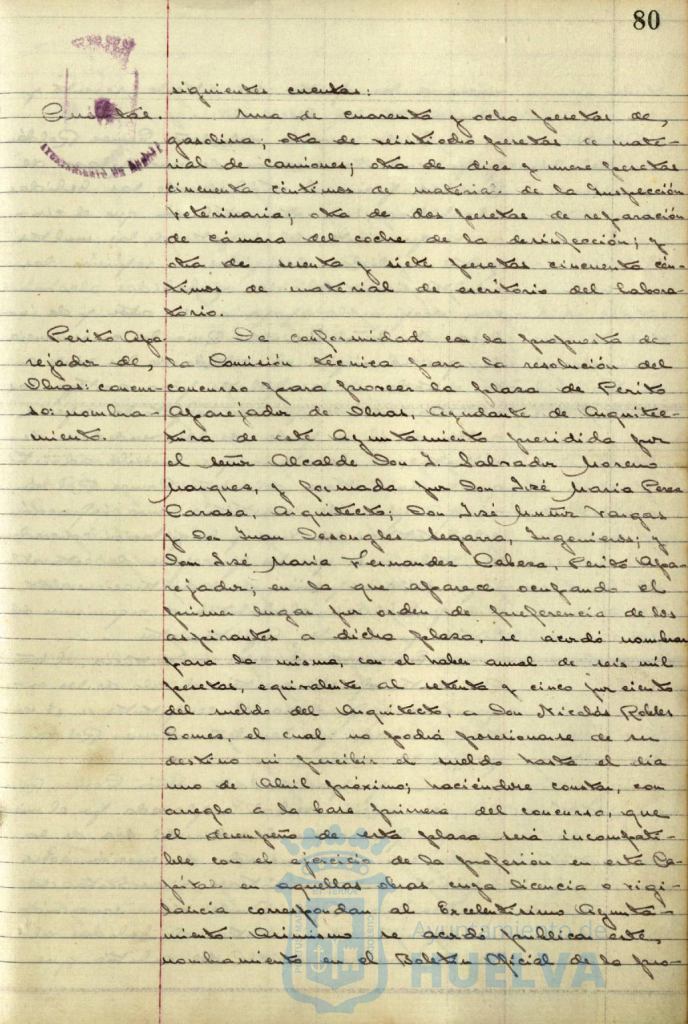 80
siguientes cuentas:
Cuentas.
Una de cuarenta y ocho pesetas de,
gasolina; otra de veintiocho pesetas de mate-
rial de camiones; otra de diez y nueve pesetas
cincuenta céntimos de material de la Inspección
Veterinaria; otra de dos pesetas de reparación
de cámara del coche de la desinfección; y
otra de sesenta y siete pesetas cincuenta cén-
timos de material de escritorio del labora-
torio.
Perito Apa
rejador de,
Obras: concur-
so: nombra-
miento.
De conformidad con la propuesta de
la Comisión técnica para la resolución del
concurso para proveer la plaza de Perito
Aparejador de Obras, Ayudante de Arquitec-
tura de este Ayuntamiento presidida por
el señor Alcalde Don J. Salvador Moreno
Marquez, y formada por Don José María Perez
Carasa, Arquitecto; Don José Muñiz Vargas
y Don Juan Desongles Segarra, Ingenieros; y
Don José María Fernandez Cabeza, Perito Apa-
rejador; en la que aparece ocupando el
primer lugar por orden de preferencia de los
aspirantes a dicha plaza, se acordó nombrar
para la misma, con el haber anual de seis mil
pesetas, equivalente al setenta y cinco por ciento
del sueldo del Arquitecto, a Don Nicolás Robles
Gomes, el cual no podrá posesionarse de su
destino ni percibir el sueldo hasta el dia
uno de Abril próximo; haciéndose constar, con
arreglo a la base primera del concurso, que
el desempeño de esta plaza será incompati-
ble con el ejercicio de la profesión en esta Ca-
pital en aquellas obras cuya licencia o vigi-
lancia correspondan al Excelentísimo Ayunta-
miento. Asimismo se acordó publicar este,
nombramiento en el Boletín Oficial de la pro-
Ayuntamiento de
HUELVA